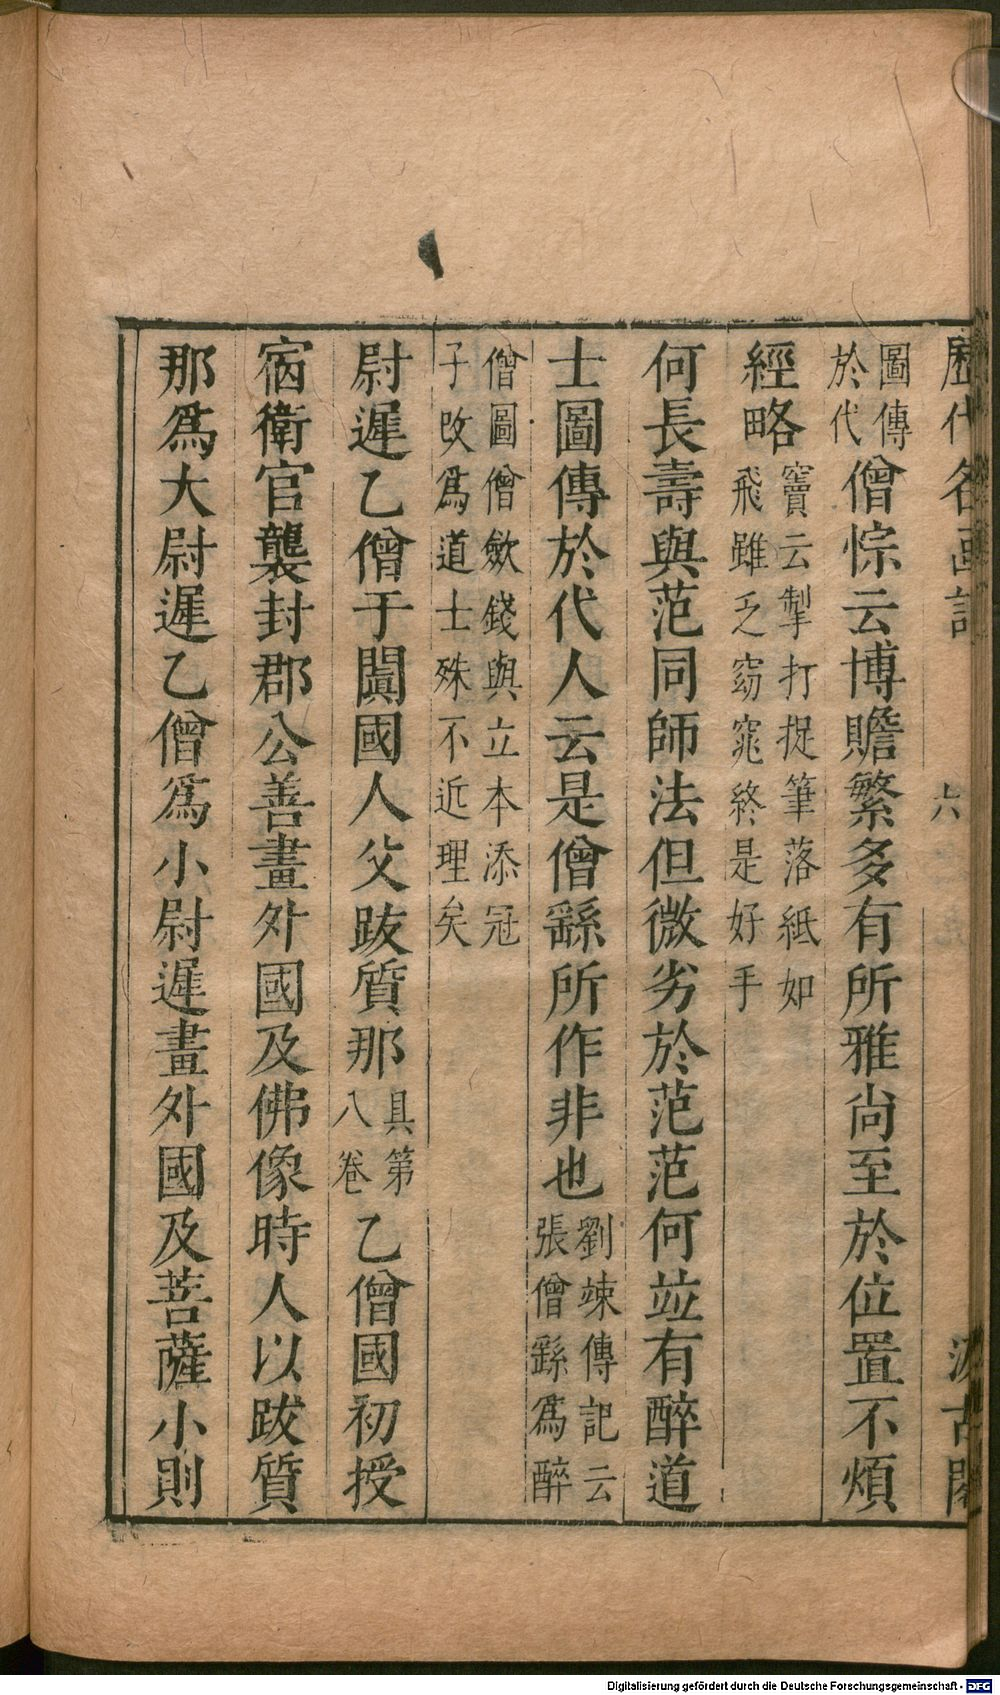 歷代名画記 六 汲古閣
圖傳
於代
僧悰云博贍繁多有所雅尚至於位置不煩
經略
竇云掣打捉筆落紙如
飛雖乏窈窕終是好手
何長壽與范同師法但微劣於范范何竝有醉道
士圖傳於代人云是僧繇所作非也
劉竦傳記云
張僧繇爲醉
僧圖僧歛錢與立本添冠
子改爲道士殊不近理矣
尉遲乙僧于闐國人父跋質那
具第
八卷
乙僧國初授
宿衛官襲封郡公善畫外國及佛像時人以跋質
那爲大尉遲乙僧爲小尉遲畫外國及菩薩小則
Digitalisierung gefördert durch die Deutsche Forschungsgemeinschaft - DFG